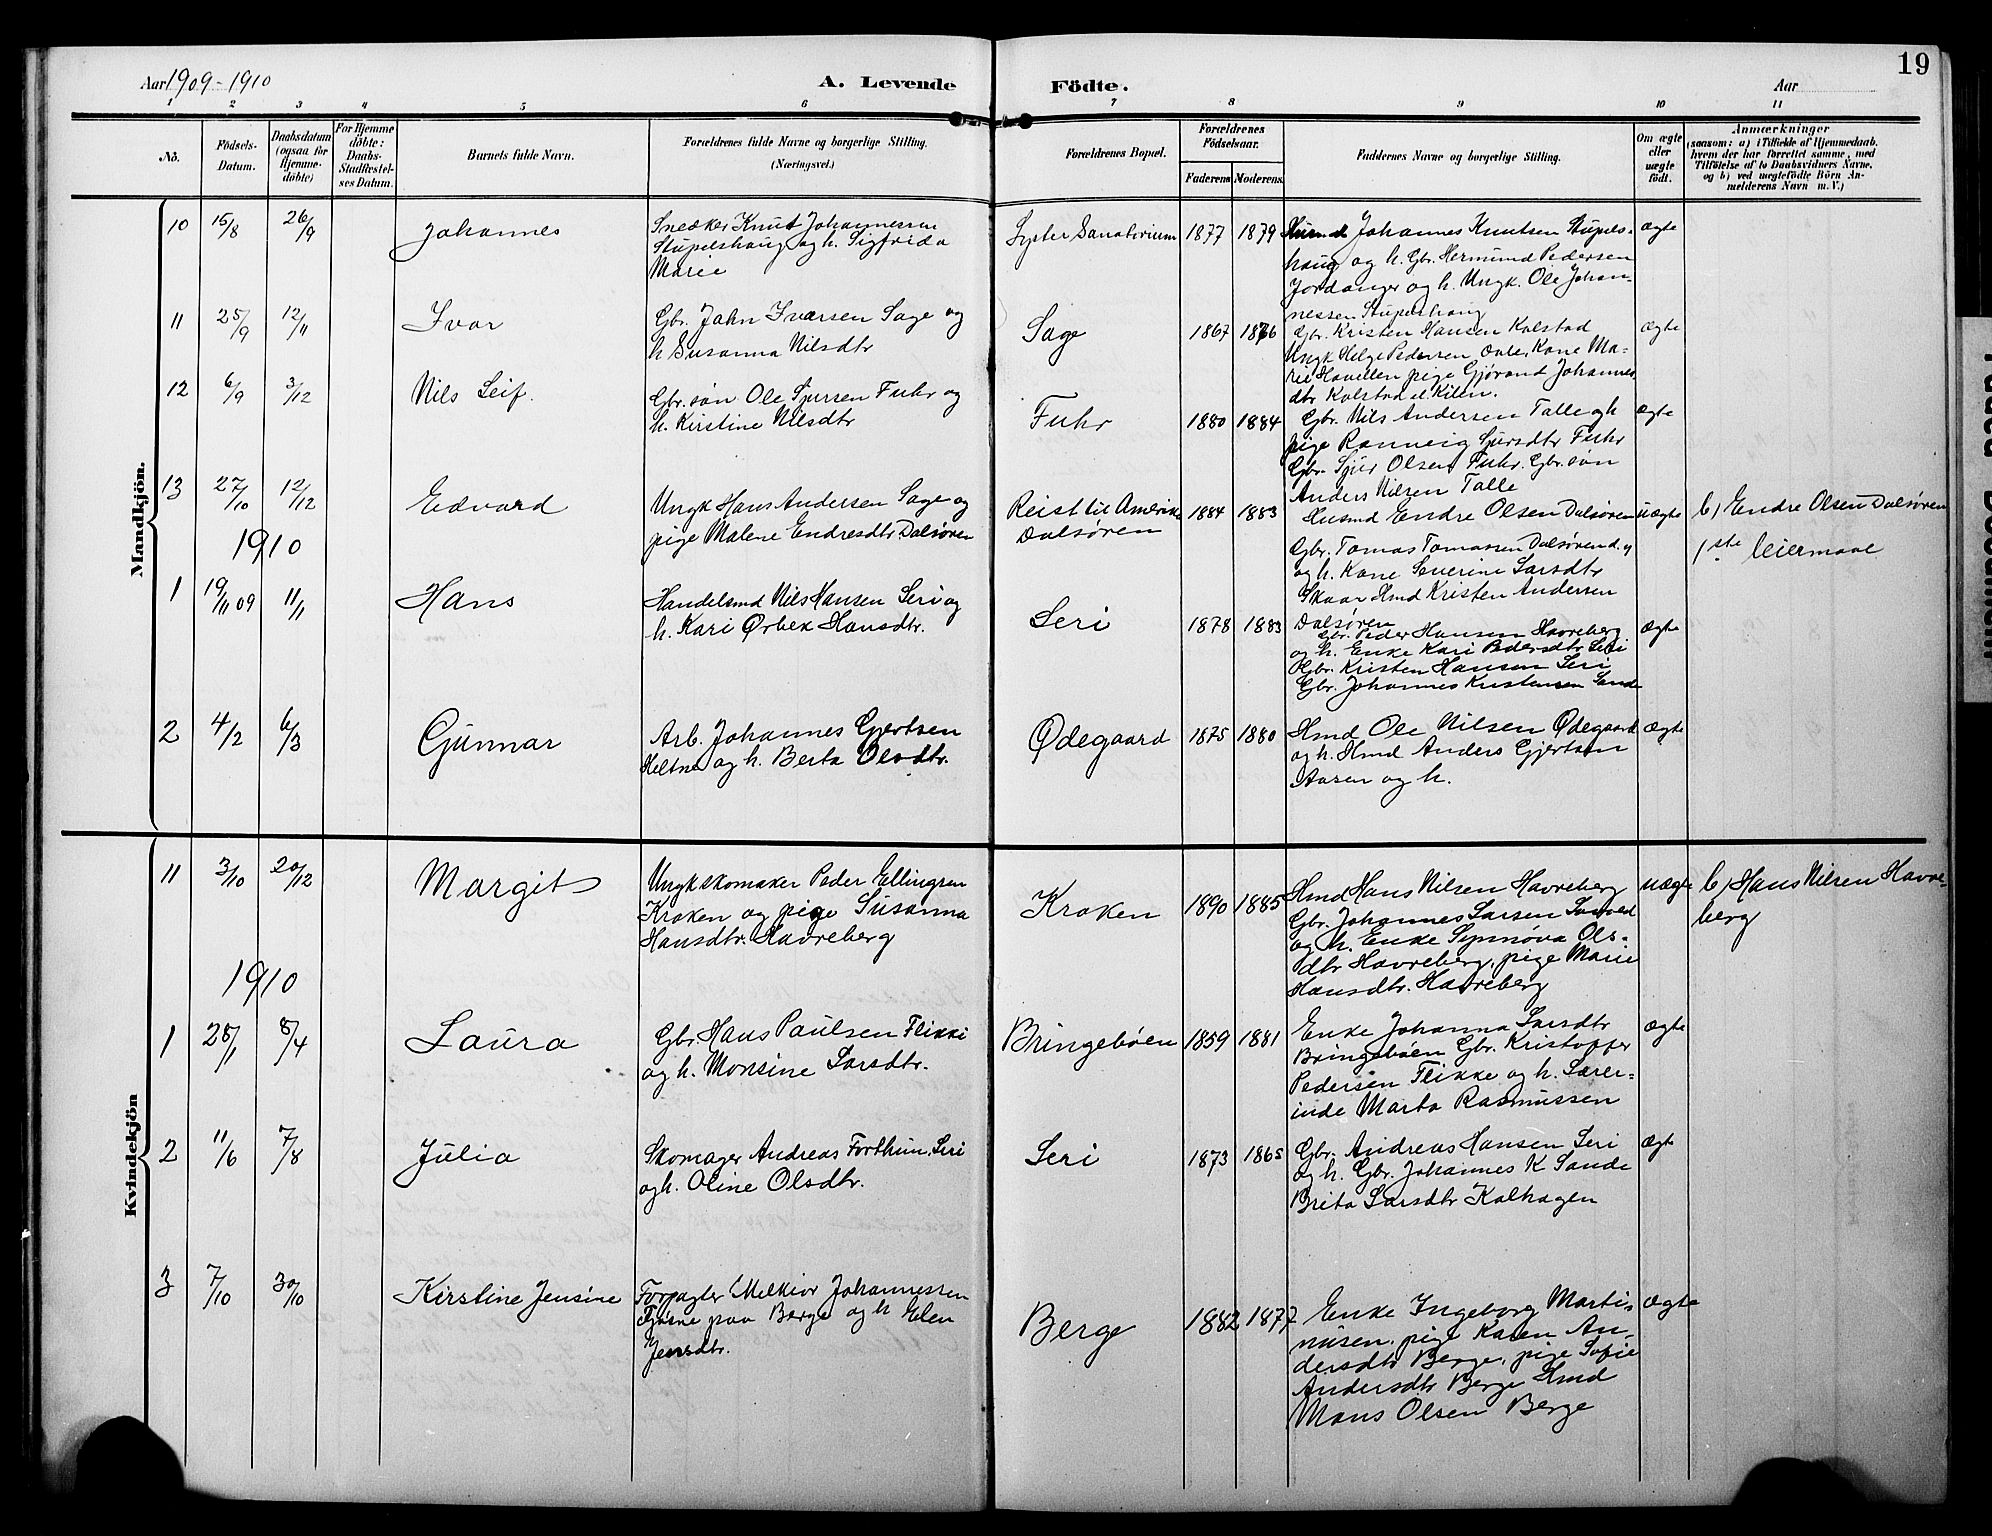 19
Aar 1909-1910
A. Levende Födte.
Aar
1 2 3 4 5 6 7 8 9 10 11
Nô.
Födsels-Datum.
Daabsdatum (ogsaa för Hjemme-döbte)
For Hjemme döbte: Daabs-Stadfæstel-ses Datum.
Barnets fulde Navn.
Forældrenes fulde Navne og borgerlige Stilling.
(Næringsvei.)
Forældrenes Bopæl.
Forældrenes Födselsaar.
Faderens Moderens
Faddernes Navne og borgerlige Stilling.
Om ægte eller uægte födt.
Anmærkninger
(saasom: a) i Tilfælde af Hjemmedaab,
hvem der har forrettet samme, med
Tilföielse af to Daabsvidners Navne,
og b) ved uægtefödte Börn An-
melderens Navn m. V.)
Mandkjön.
10 15/8 26/9 Johannes
Snedker Knut Johannessen
Stupelshaug og h. Sigfrida
Marie
Lyster Sanatorium 1877 1879
Husmd Johannes Knutsen Stupels-
haug og h. Gbr. Hermund Pedersen
Jordanger og h. Ungk. Ole Johan-
nessen Stupeshaug
ægte
11 25/9 12/11 Ivar
Gbr. John Ivarsen Sage og
h Susanna Nilsdtr
Sage 1867 1876
Gbr. Kristen Hansen Kolstad
Ungk Helge Pedersen Kone Ma-
rie pige Gjørond Johannes
dtr Kolstad Kilen.
ægte
12 6/9 3/12 Nils Leif.
Gbr. søn Ole Sjursen Fuhr og
h. Kirstine Nilsdtr
Fuhr 1880 1884
Gbr. Nils Andersen Talle og h
pige Ranneig Sjursdtr Fuhr
Gbr. Sjur Olsen Fuhr. Gbr. søn
Anders Nilsen Talle
ægte
13 27/10 12/12 Edvard
Ungk Hans Andersen Sage og
pige Malene Endresdtr Dalsøren
Reist til Amerika
Dalsøren
1884 1883
Husmd Endre Olsen Dalsøren
Gbr. Tomas Tomassen Dalsøren d. y
og h. Kone Severine Larsdtr
Skaar Hmd Kristen Andersen
Dalsøren
uægte
b, Endre Olsen Dalsøren
1ste leiermaal
1910
1 19/11 09 11/1 Hans
Handelsmd Nils Hansen Leri og
h. Kari Ørbek Hansdtr.
Leri 1878 1883
Gbr. Peder Hansen Havreberg
og h. Enke Kari Pedersdtr Leri
Gbr. Kristen Hansen Leri
Gbr. Johannes Kristensen Sande
ægte
2 4/2 6/3 Gunnar
Arb. Johannes Gjertsen
Heltne og h. Berta Olsdtr.
Ødegaard 1875 1880
Hmd Ole Nilsen Ødegaard
og h. Hmd Anders Gjertsen
Aasen og h.
ægte
Kvindekjön
11 3/10 20/12 Margit
Ungk skomaker Peder Ellingsen
Kroken og pige Susanna
Hansdtr. Havreberg
Kroken 1890 1885
Hmd Hans Nilsen Havreberg
Gbr. Johannes Larsen
og h. Enke Synnøva Ols-
dtr Havreberg, pige Marie
Hansdtr. Havreberg
uægte
b, Hans Nilsen Havre-
berg
1910
1 25/1 8/4 Laura
Gbr. Hans Paulsen Flikki
og h. Monsine Larsdtr.
Bringebøen 1859 1881
Enke Johanna Larsdtr
Bringebøen Gbr. Kristoffer
Pedersen Flikke og h. Lærer-
inde Marta Rasmussen
ægte
2 11/6 7/8 Julia
Skomager Andreas Forthun, Leri
og h. Oline Olsdtr.
Leri 1873 1865
Gbr. Andreas Hansen Leri
og h. Gbr. Johannes K Sande
Brita Larsdtr Kalhagen
ægte
3 7/10 30/10 Kirstine Jensine
Forpagter Melkior Johannessen
Fjøsne paa Berge og h Elen
Jensdtr.
Berge 1882 1877
Enke Ingeborg Marti-
nusen, pige Karen An-
dersdtr Berge, pige Sofie
Andersdtr Berge Hmd
Mons Olsen Berge
ægte